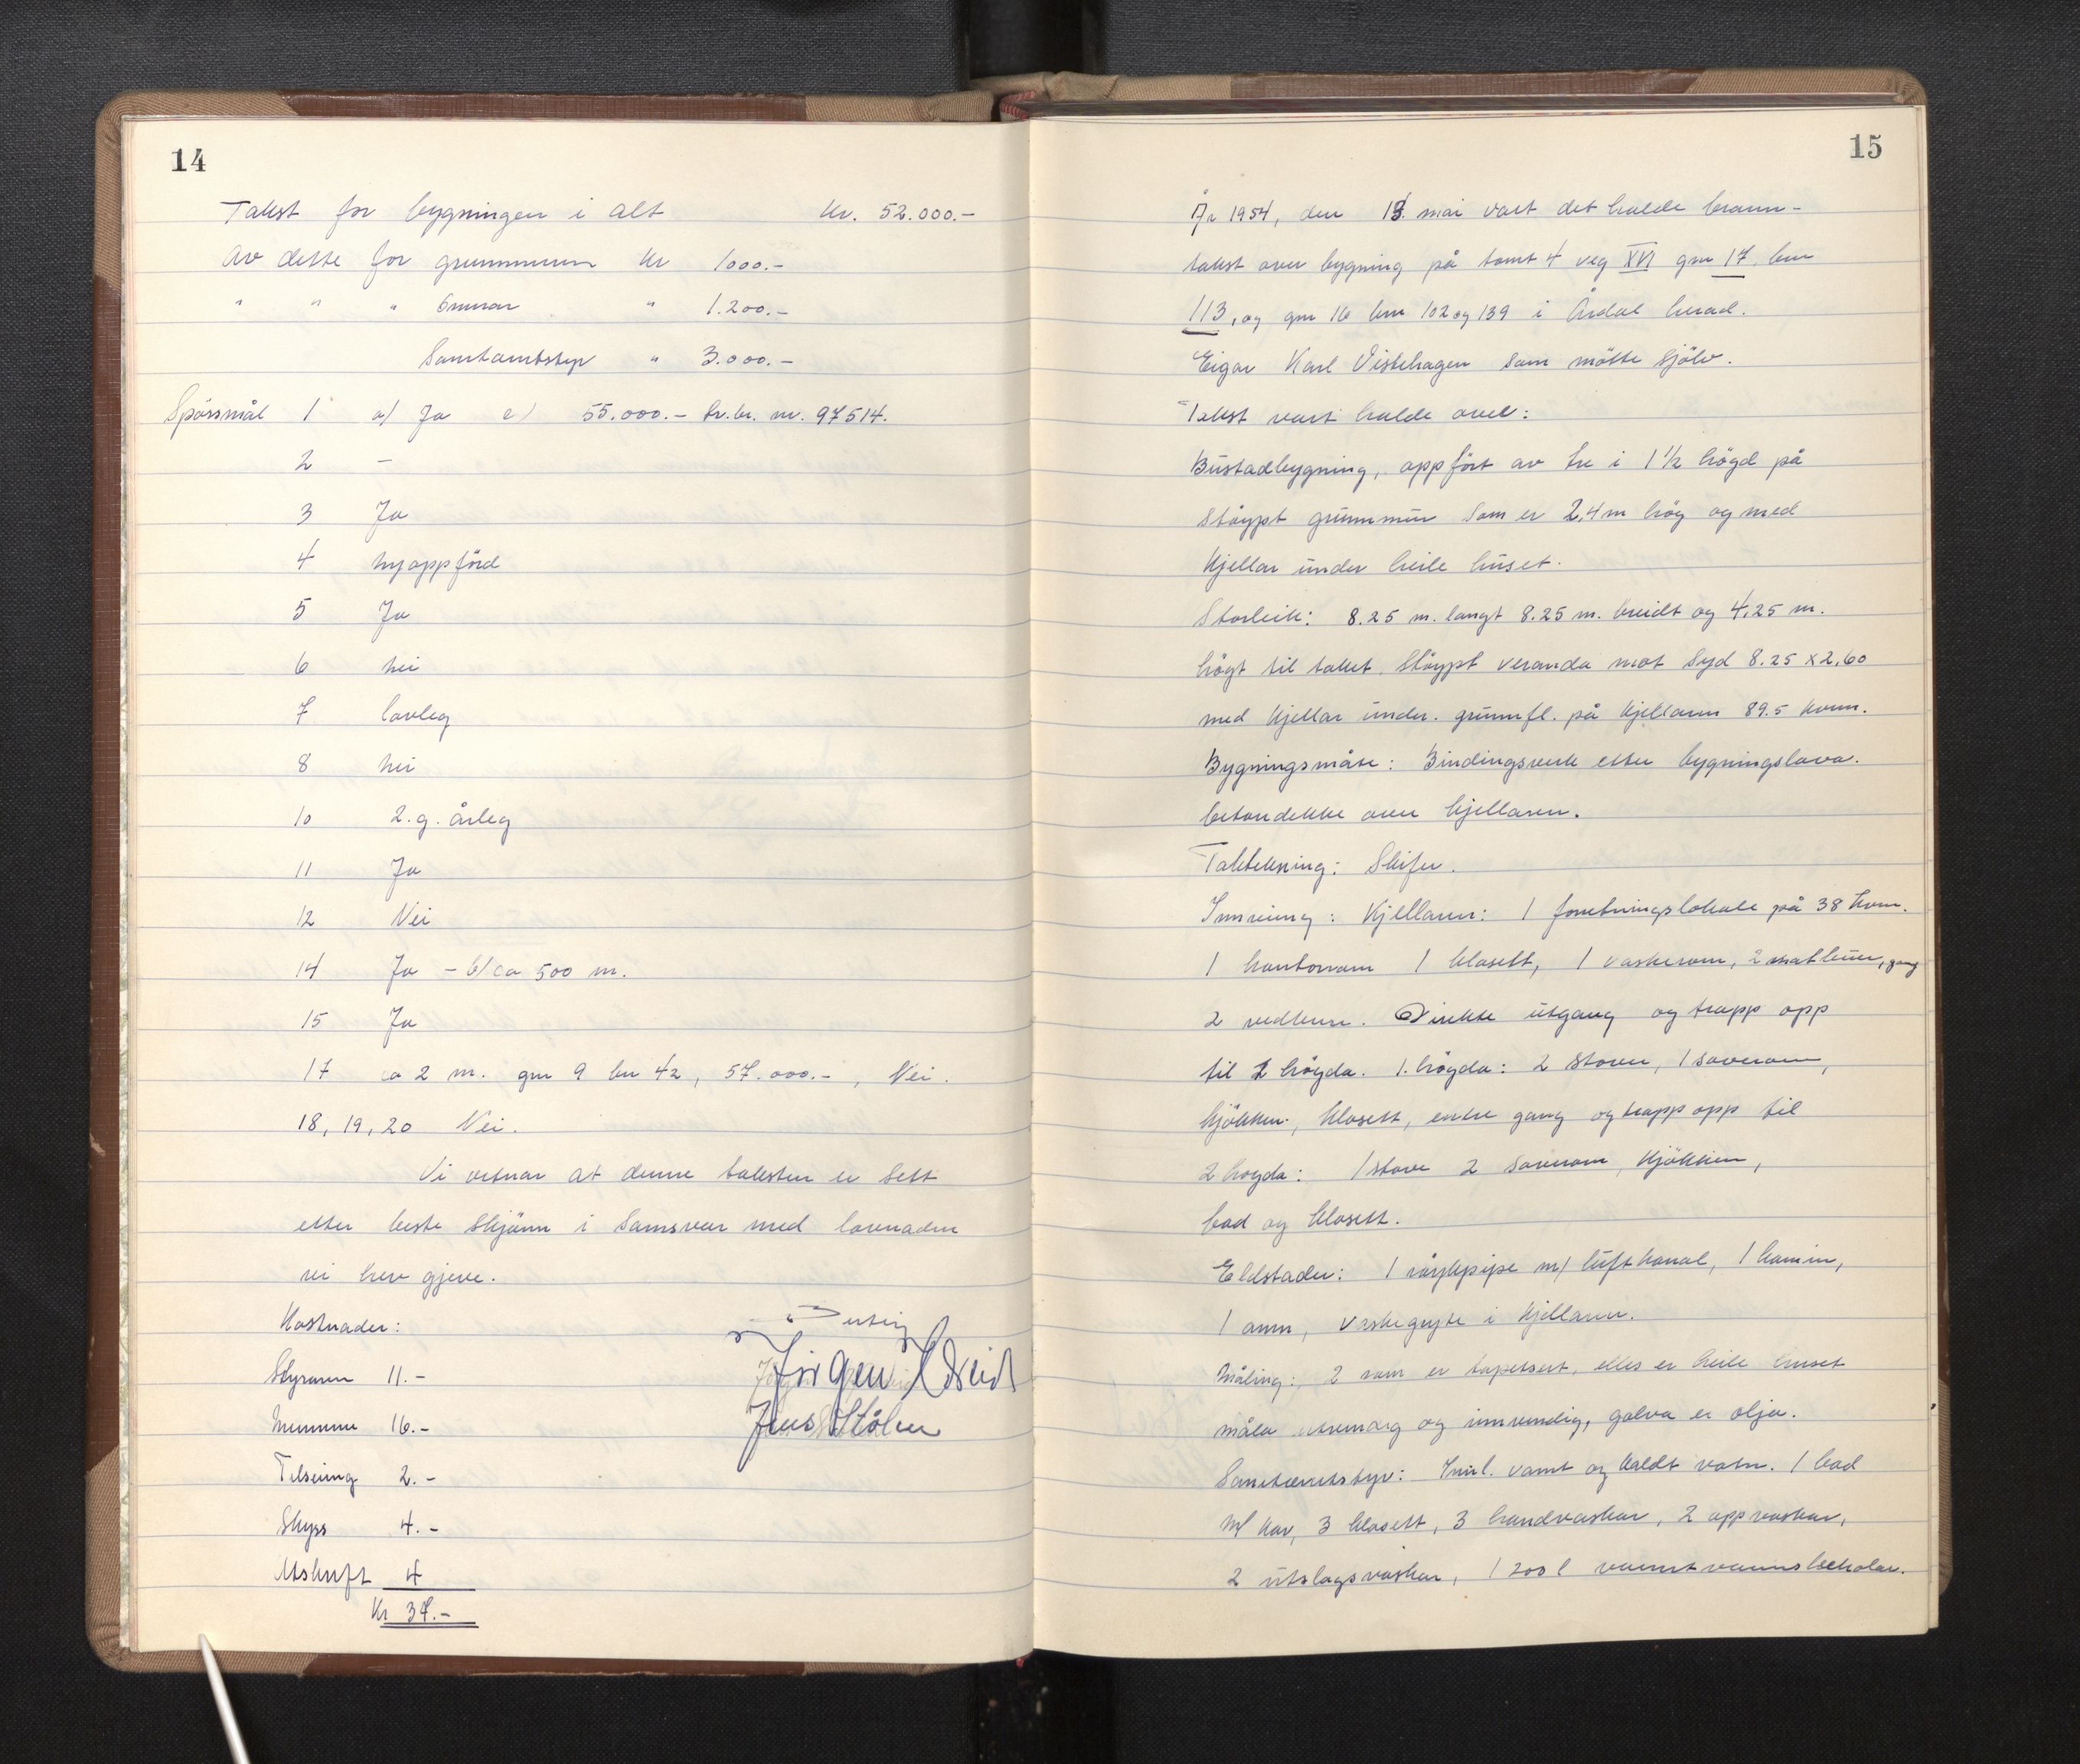 14
Takst for bygningen i alt kr. 52.000.-
Av dette for grunnmuren kr 1000.-
" " " 6murar " 1.200.-
Sanitærutstyr " 3.000.-
Spörsmål 1 a) Ja c) 55.000.- br.br. nr. 97514.
2 -
3 Ja
4 nyoppförd
5 Ja
6 nei
7 lovleg
8 nei
10 2.g. årleg
11 Ja
12 Nei
14 Ja - b/ ca 500 m.
15 Ja
17 ca 2 m. gnr 9 bnr 42, 57.000.-, Nei.
18, 19, 20 Nei.
Vi vitnar at denne taksten er sett
etter beste skjönn i samsvar med lovnaden
vi hev gjeve.
Kostnader:
Styraren 11.-
Nemnene 16.-
Tilseiing 2.-
Jörgen
Jens Stölen
Skyss 4.-
Utskrift 4
Kr 37.-
15
År 1954, den 13. mai vart det halde brann-
takst over bygning på tomt 4 veg XVI gnr 17, bnr
113, og gnr 16 bnr 102 og 139 i Årdal herad.
Eigar Karl Vistehagen som mötte sjölv.
Takst vart halde over:
Bustadbygning, oppfört av tre i 1 1/2 högd på
stöypt grunnmur som er 2,4 m hög og med
kjellar under heile huset.
Storleik: 8.25 m. langt 8.25 m. breidt og 4,25 m.
högt til taket. Stöypt veranda mot syd 8.25 x 2,60
med kjellar under. grunnfl. på kjellaren 89.5 kvm.
Bygningsmåte: Bindingsverk etter bygningslova.
betondekke over kjellaren.
Taktekning: Skifer.
Innreiing: Kjellaren: 1 forretningslokale på 38 kvm.
1 kontorrom 1 klosett, 1 vaskerom, 2 matbuer, gang
2 vedbuer. Direkte utgang og trapp opp
til 1 högda. 1. högda: 2 stover, 1 soverom,
kjökken, klosett, entre gang og trapp opp til
2 högda: 1 stove 2 soverom, kjökken,
bad og klosett.
Eldstader: 1 röykpipe m/ luftkanal, 1 kamin,
1 omn, vaskegryte i kjellaren.
Måling: 2 rom er tapetsert, elles er heile huset
måla utvendig og innvendig, golva er olja.
Sanitærutstyr: Innl. varmt og kaldt vatn. 1 bad
m/ kar, 3 klosett, 3 handvaskar, 2 oppvaskar,
2 utslagsvaskar, 1 200 l varmtvannsbeholar.